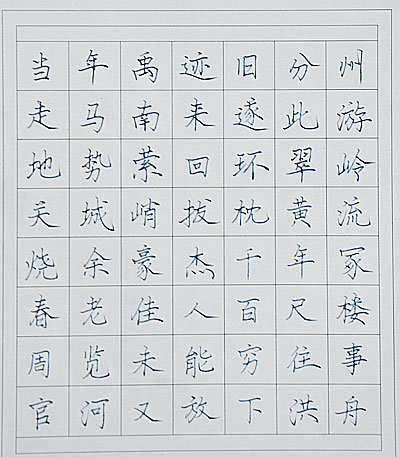 当年禹迹旧分州
走马南来遂此游
地势萦回环翠岭
关城峭拔枕黄流
烧余豪杰千年冢
春老佳人百尺楼
周览未能穷往事
官河又放下洪舟